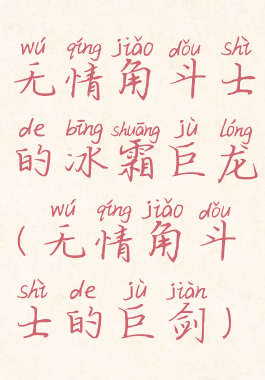 wú qíng jiǎo dǒu shì
无情角斗士
de bīng shuāng jù lóng
的冰霜巨龙
wú qíng jiǎo dǒu
(无情角斗
shì de jù jiàn
士的巨剑)